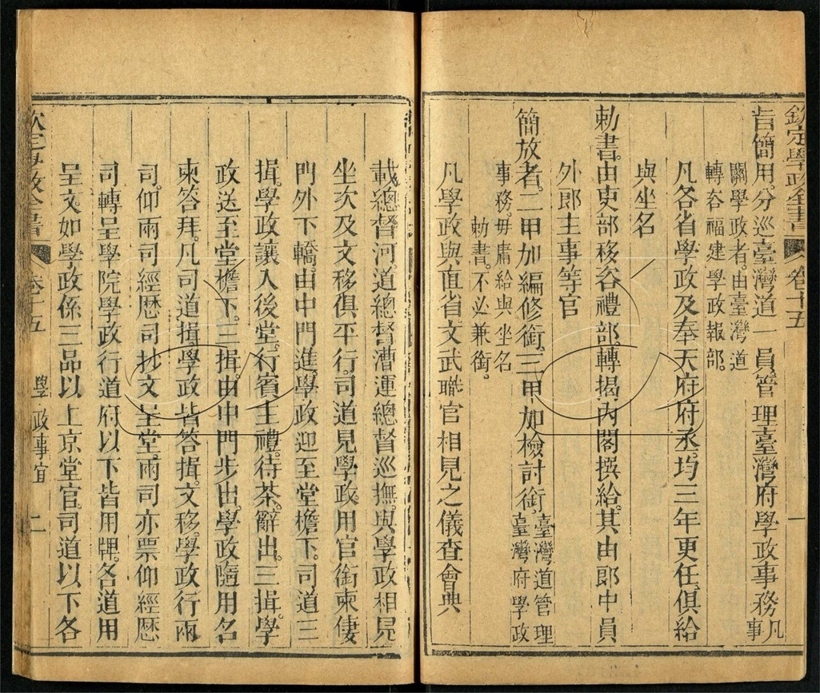 欽定學政全書 卷十五 一
旨簡用分巡臺灣道一員管理臺灣府學政事務凡事
關學政者。由臺灣道
轉咨福建學政報部。
凡各省學政及奉天府府丞。均三年更任。俱給
與坐名
勅書。由吏部移咨禮部。轉揭內閣撰給。其由郎中員
外郎主事等官
簡放者。二甲加編修銜。三甲加檢討銜。臺灣道管理
臺灣府學政
事務。毋庸給與坐名
勅書。不必兼銜。
凡學政與直省文武職官相見之儀。查會典
載總督河道總督漕運總督巡撫。與學政相見
坐次及文移俱平行。司道見學政用官銜柬。
門外下轎。由中門進。學政迎至堂檐下。司道三
揖。學政讓入後堂。行賓主禮。待茶。辭出。三揖。學
政送至堂檐下。三揖。由中門步出。學政隨用名
柬答拜。凡司道揖。學政皆答揖。文移。學政行兩
司。仰兩司經歷司抄文呈堂。兩司亦票仰經歷
司轉呈學院。學政行道府以下皆用牌。各道用
呈文。如學政係三品以上京堂官。司道以下各
欽定學政全書 卷十五 學政事宜 二